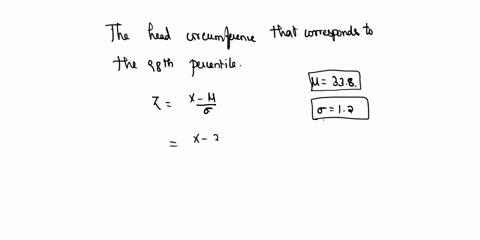 The head circumference that corresponds to
the 98th percentile.
μ = 33.8.
Z = x - μ / σ
σ = 1.2
= x - 3